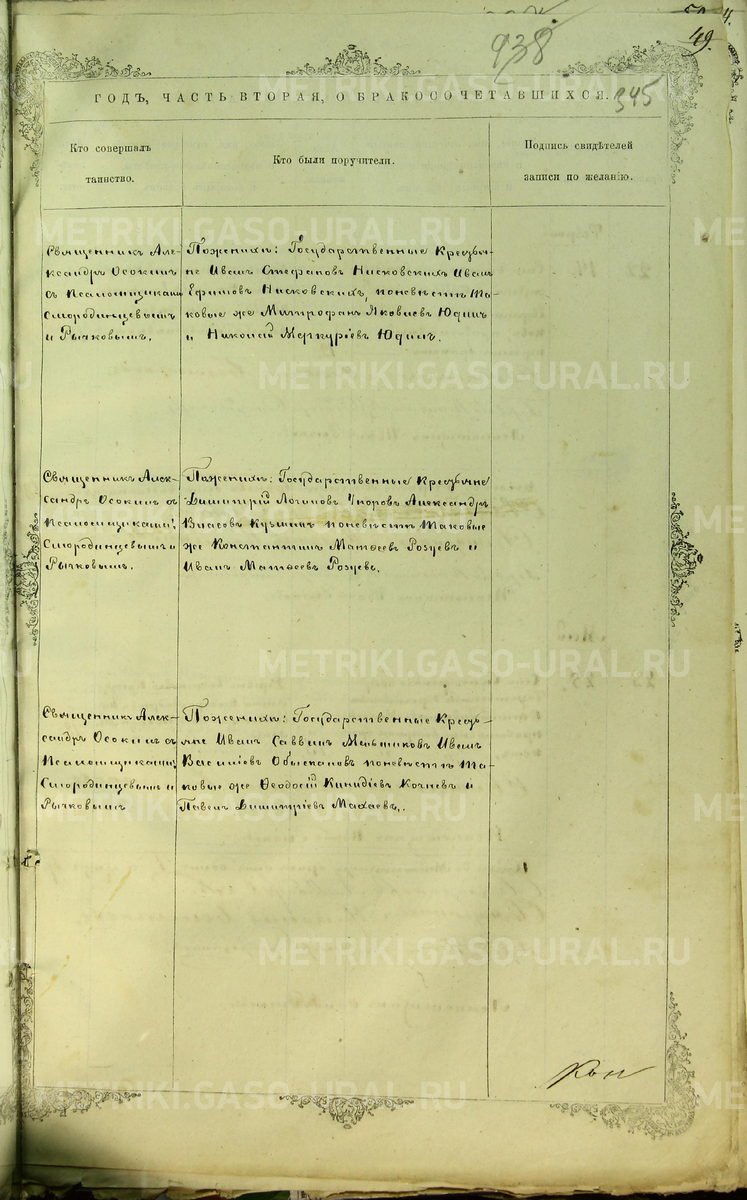 4.
49.
938
345
ГОДЪ, ЧАСТЬ ВТОРАЯ, О БРАКОСОЧЕТАВШИХСЯ.
Кто совершалъ
таинство.
Кто были поручители.
Подпись свидѣтелей
записи по желанію.
Священникъ Але-
ксандръ Осокинъ
съ Псаломщиками
Смородинцевымъ
и Рычковымъ.
По женихѣ: Государственные Крестья-
не Иванъ Стефановъ Нисковскихъ Иванъ
Ефимовъ Нисковскихъ, по невѣстѣ та-
ковые же Митрофанъ Яковлевъ Юдинъ
и Николай Меркуріевъ Юдинъ.
Священникъ Алек-
сандръ Осокинъ съ
Псаломщиками
Смородинцевымъ и
Рычковымъ.
По женихѣ: Государственные Крестьяне
Димитрій Логиновъ Александръ
Власовъ Кузьминъ по невѣстѣ таковые
же Константинъ Матѳеевъ и
Иванъ Матѳеевъ
Священникъ Алек-
сандръ Осокинъ съ
Псаломщиками
Смородинцевымъ и
Рычковымъ
По женихѣ: Государственные Кресть-
яне Иванъ Саввинъ Мельниковъ Иванъ
Василіевъ по невѣстѣ та-
ковые же Ѳеодосій Кочневъ и
Павелъ Димитріевъ Махаевъ.
METRIKI.GASO-URAL.RU